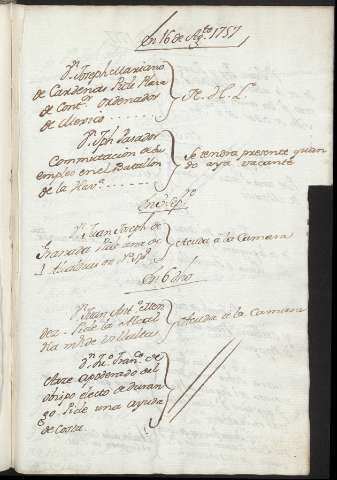 En 16 de Ag.to 1757
D.n Joseph Mariano
de Cardenas Pide Plaza
de Cont.or Ordenador
de Mexico
D.n Jph Pasador
Commutacion de su
empleo en el Batallon
de la Hav.a
Se tendra presente quan
do aya vacante
D.n Juan Joseph de
Granada Pide una de
Acuda a la Camara
En 6 dho
D.n Juan Ant.o Men
dez - Pide la Alcal
Acuda a la Camara
D.n Ju.o Fran.co de
apoderado del
obispo electo de Duran
go. Pide una ayuda
de Costa